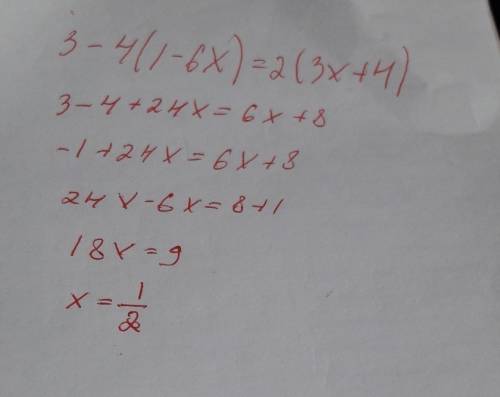 3-4(1-6x)=2(3x+4)
3-4+24x=6x+8
-1+24x=6x+8
24x-6x=8+1
18x=9
x=1/2